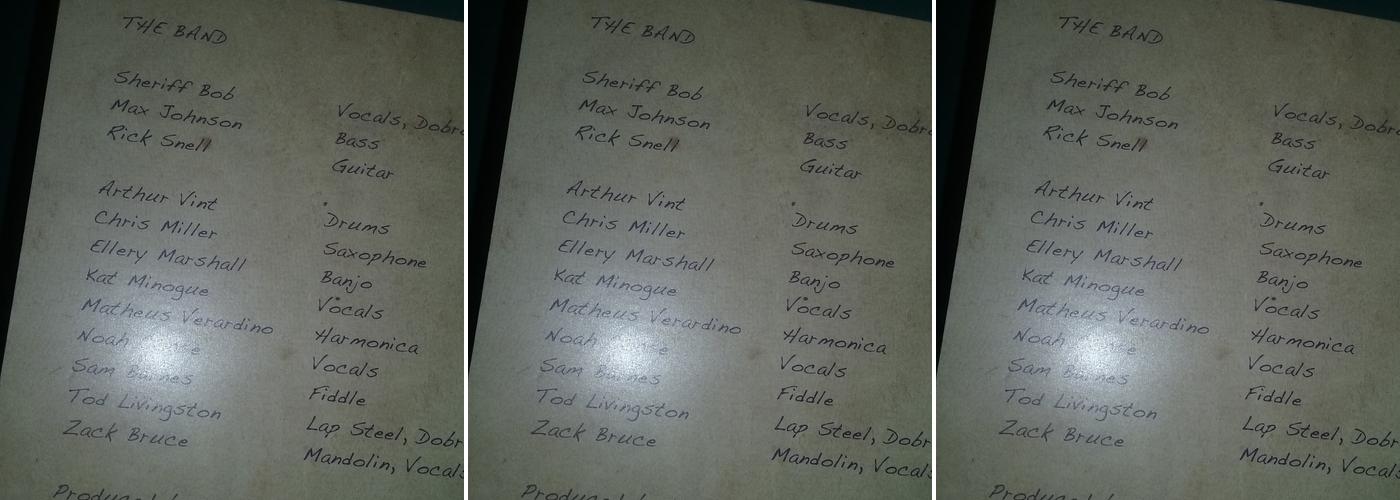 THE BAND
Sheriff Bob Vocals, Dobro
Max Johnson Bass
Rick Snell Guitar
Arthur Vint Drums
Chris Miller Saxophone
Ellery Marshall Banjo
Kat Minogue Vocals
Matheus Verardino Harmonica
Noah Vocals
Sam Fiddle
Tod Livingston Lap Steel, Dobr
Zack Bruce Mandolin, Vocals
THE BAND
Sheriff Bob Vocals, Dobro
Max Johnson Bass
Rick Snell Guitar
Arthur Vint Drums
Chris Miller Saxophone
Ellery Marshall Banjo
Kat Minogue Vocals
Matheus Verardino Harmonica
Noah Vocals
Sam Fiddle
Tod Livingston Lap Steel, Dobr
Zack Bruce Mandolin, Vocals
THE BAND
Sheriff Bob Vocals, Dobro
Max Johnson Bass
Rick Snell Guitar
Arthur Vint Drums
Chris Miller Saxophone
Ellery Marshall Banjo
Kat Minogue Vocals
Matheus Verardino Harmonica
Noah Vocals
Sam Fiddle
Tod Livingston Lap Steel, Dobr
Zack Bruce Mandolin, Vocals